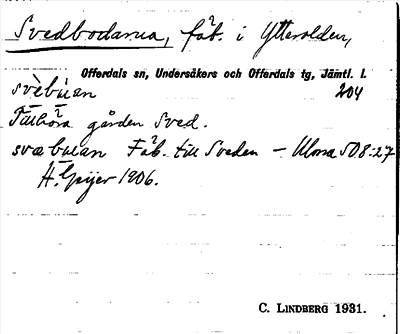 Svedbodarna, fäb. i Ytterolden,
Offerdals sn, Undersåkers och Offerdals tg, Jämtl. l.
svèbúan 204
Tillhöra gården Sved.
svæbuan Fäb. till Sveden – Ulma 508:27
H. Geijer 1906.
C. LINDBERG 1931.